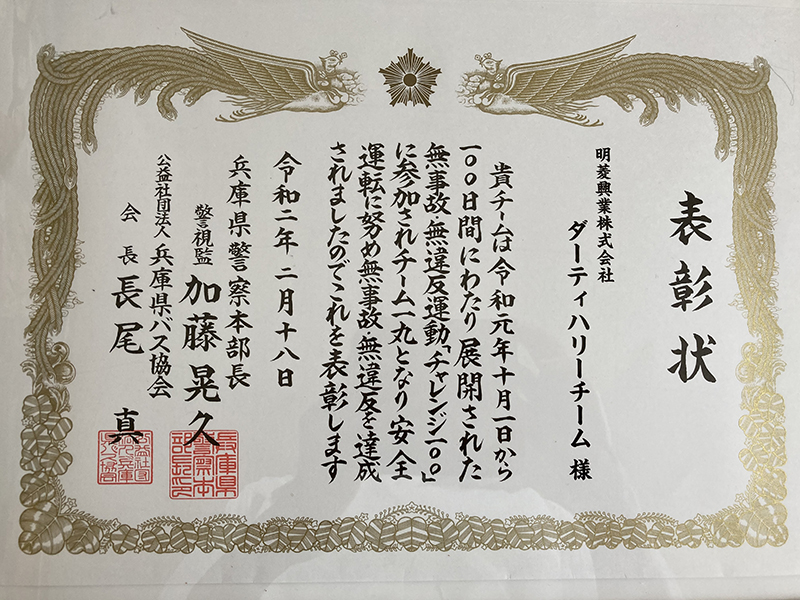 表彰状
明菱興業株式会社
ダーティハリーチーム 様
貴チームは令和元年十月一日から
一〇〇日間にわたり展開された
無事故・無違反運動「チャレンジ一〇〇」
に参加されチーム一丸となり安全
運転に努め無事故・無違反を達成
されましたのでこれを表彰します
令和二年二月十八日
兵庫県警察本部長
警視監 加藤晃久
公益社団法人 兵庫県バス協会
会長 長尾 真
兵庫県
警察本
部長印